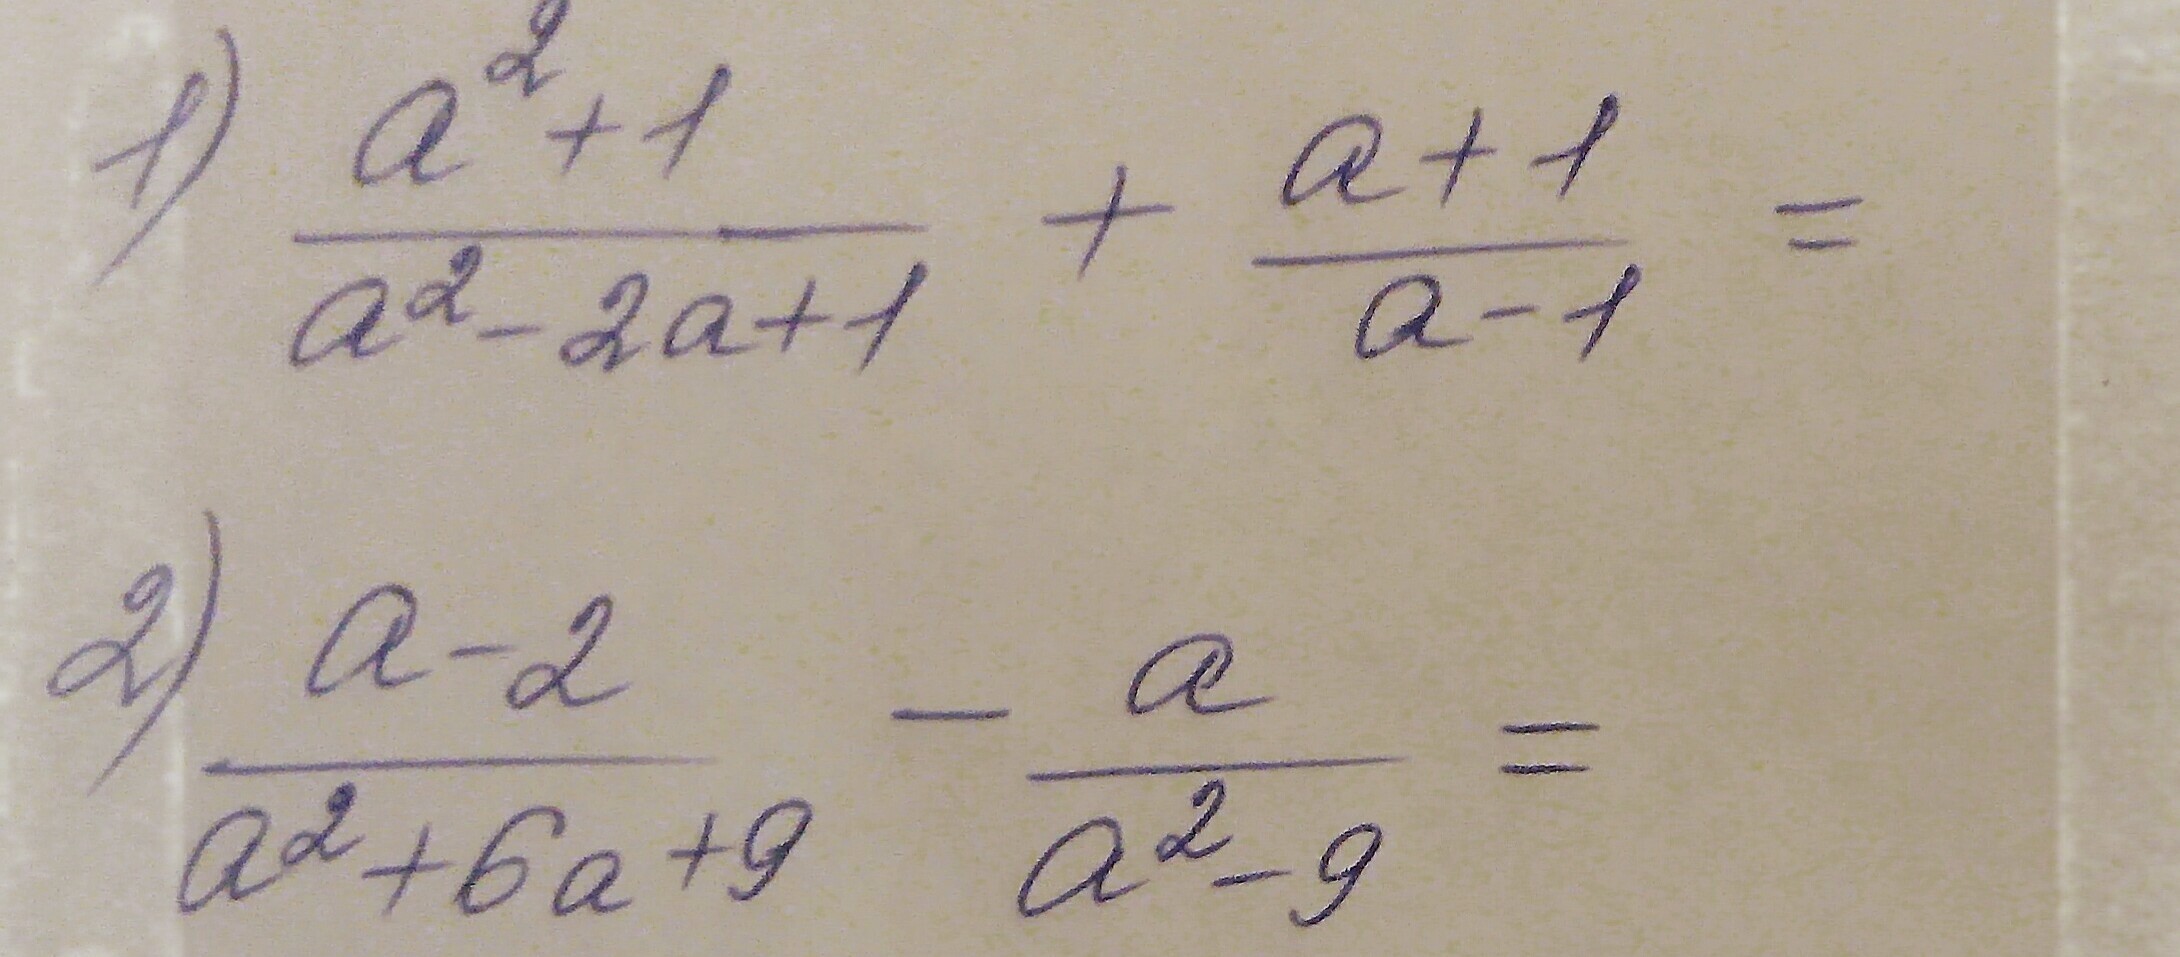 1) \frac{a^2+1}{a^2-2a+1} + \frac{a+1}{a-1} =
2) \frac{a-2}{a^2+6a+9} - \frac{a}{a^2-9} =